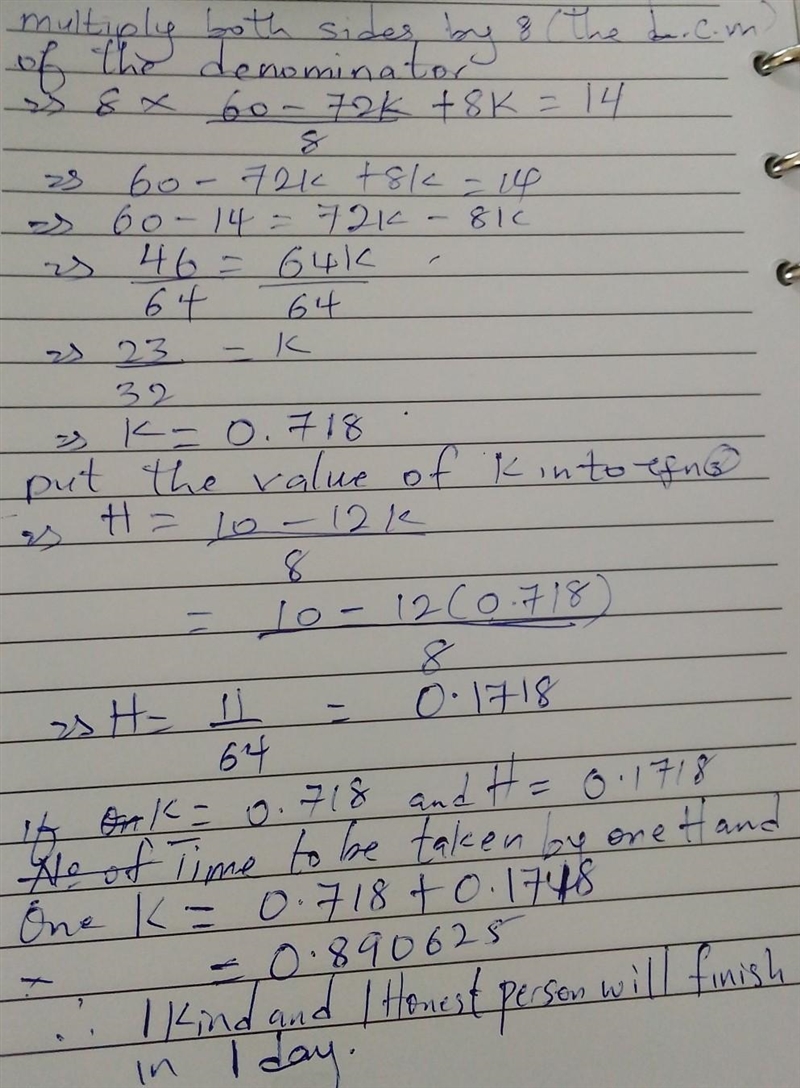 multiply both sides by 8 (the L.C.m)
of the denominator
=> 8 × (60 - 72K)/8 + 8K = 14
=> 60 - 72K + 8K = 14
=> 60 - 14 = 72K - 8K
=> 46/64 = 64K/64
=> 23/32 = K
=> K = 0.718
put the value of K into eqn③
=> H = (10 - 12K)/8
= (10 - 12(0.718))/8
=> H = 11/64 = 0.1718
If K = 0.718 and H = 0.1718
Time to be taken by one H and
One K = 0.718 + 0.1718
= 0.890625
∴ 1 Kind and 1 Honest person will finish
in 1 day.